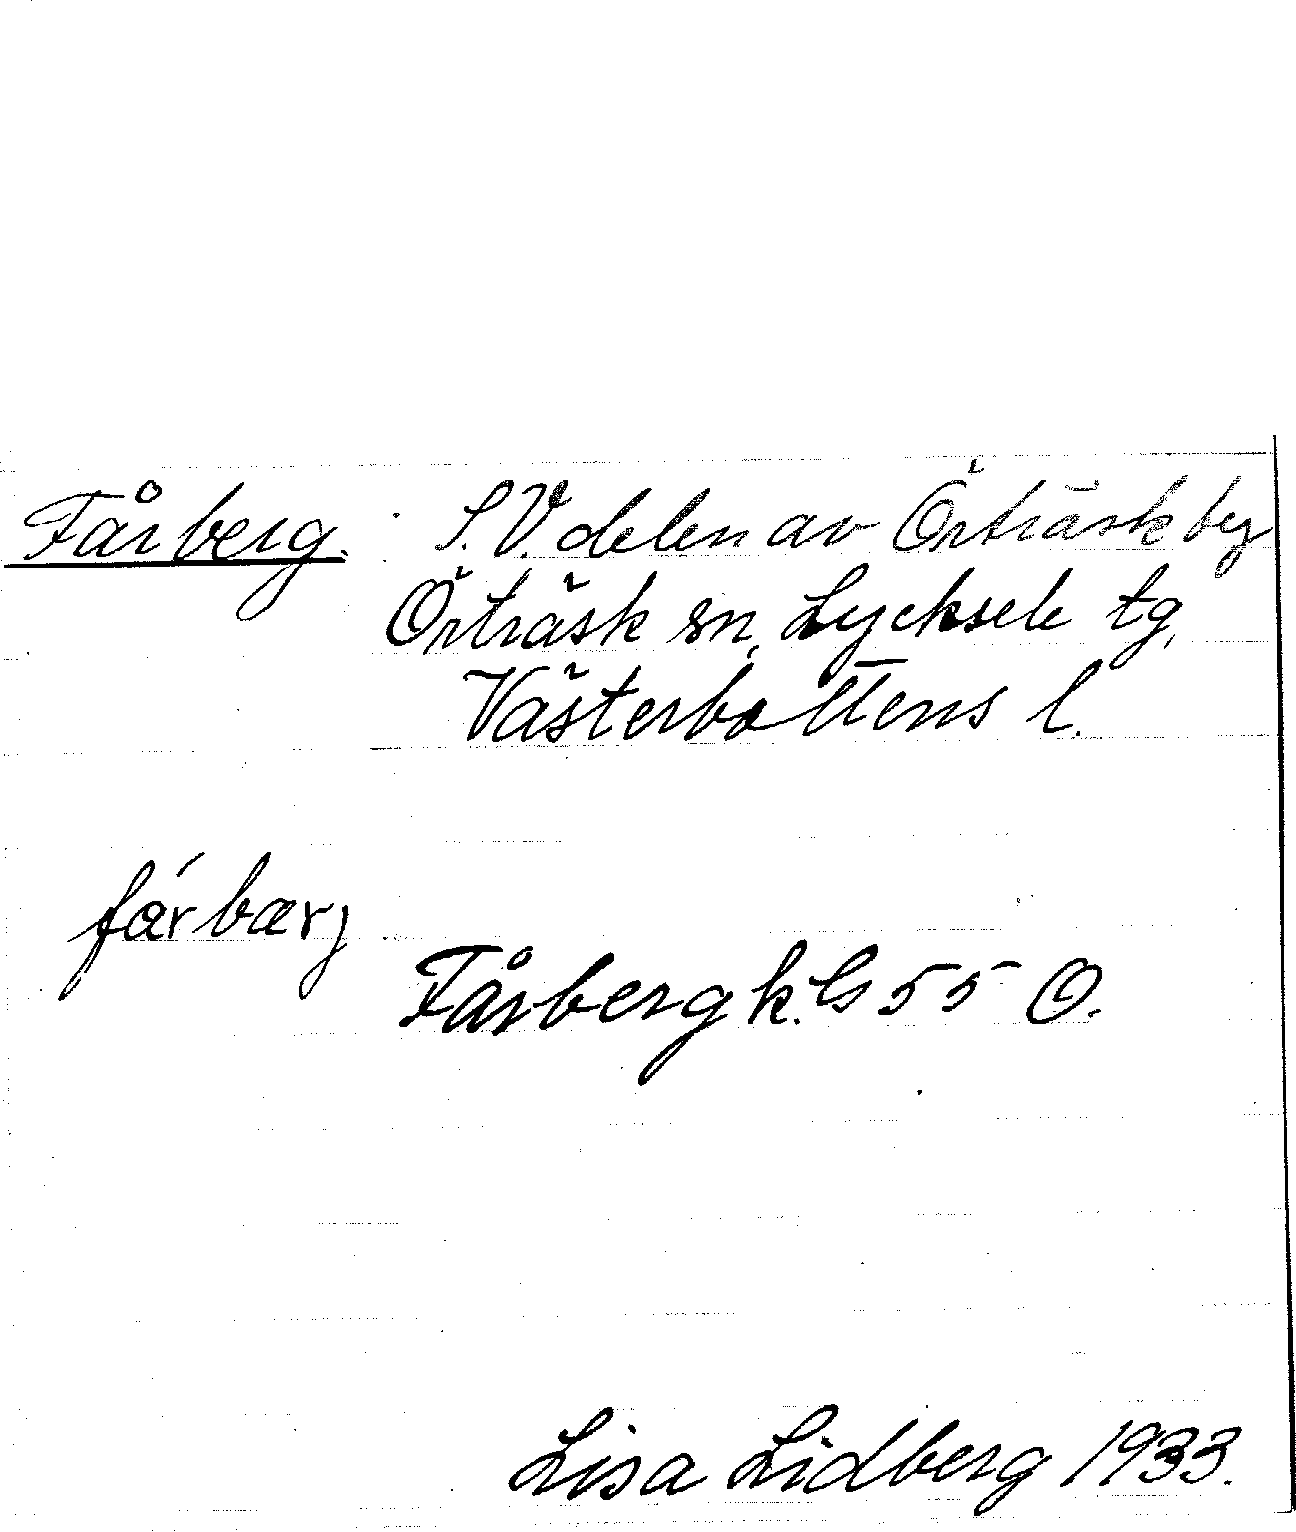 Fårberg. S.V. delen av Örträsk by
Örträsk sn, Lycksele tg,
Västerbottens l.
fǽrbærj
Fårberg k. Gs 55 O.
Lisa Lidberg 1933.